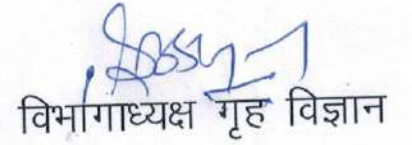 विभागाध्यक्ष गृह विज्ञान